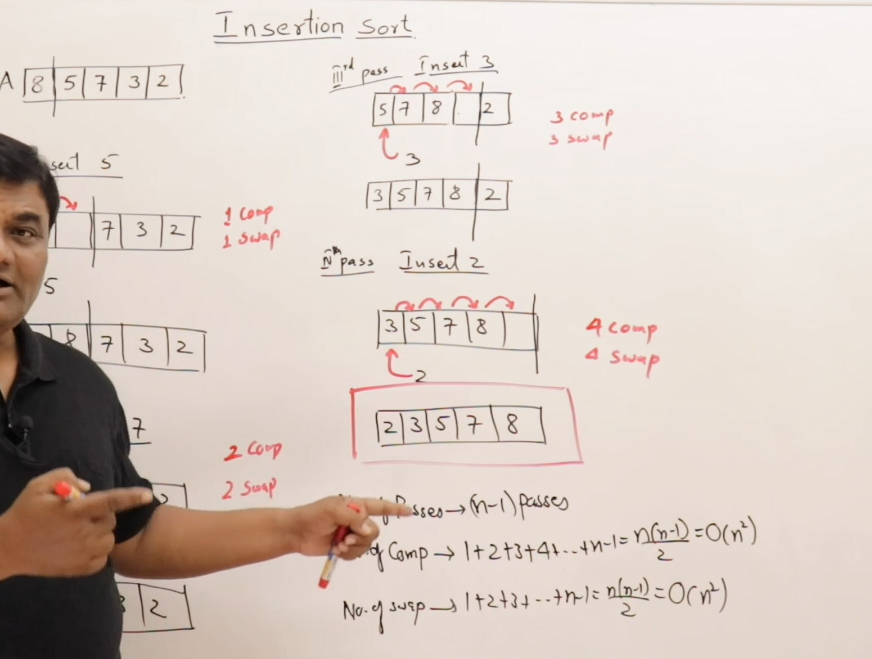 Insertion Sort
A 8 5 7 3 2
5
7 3 2
1 Comp
1 swap
5
8 7 3 2
7
2 Comp
2 swap
2
IIIrd pass Insert 3
5 7 8 2
3
3 comp
3 swap
3 5 7 8 2
pass Insert 2
3 5 7 8
2
4 comp
4 swap
2 3 5 7 8
Passes → (n-1) passes
of Comp → 1+2+3+4+...+n-1 = n(n-1)/2 = O(n²)
No. of swap → 1+2+3+...+n-1 = n(n-1)/2 = O(n²)